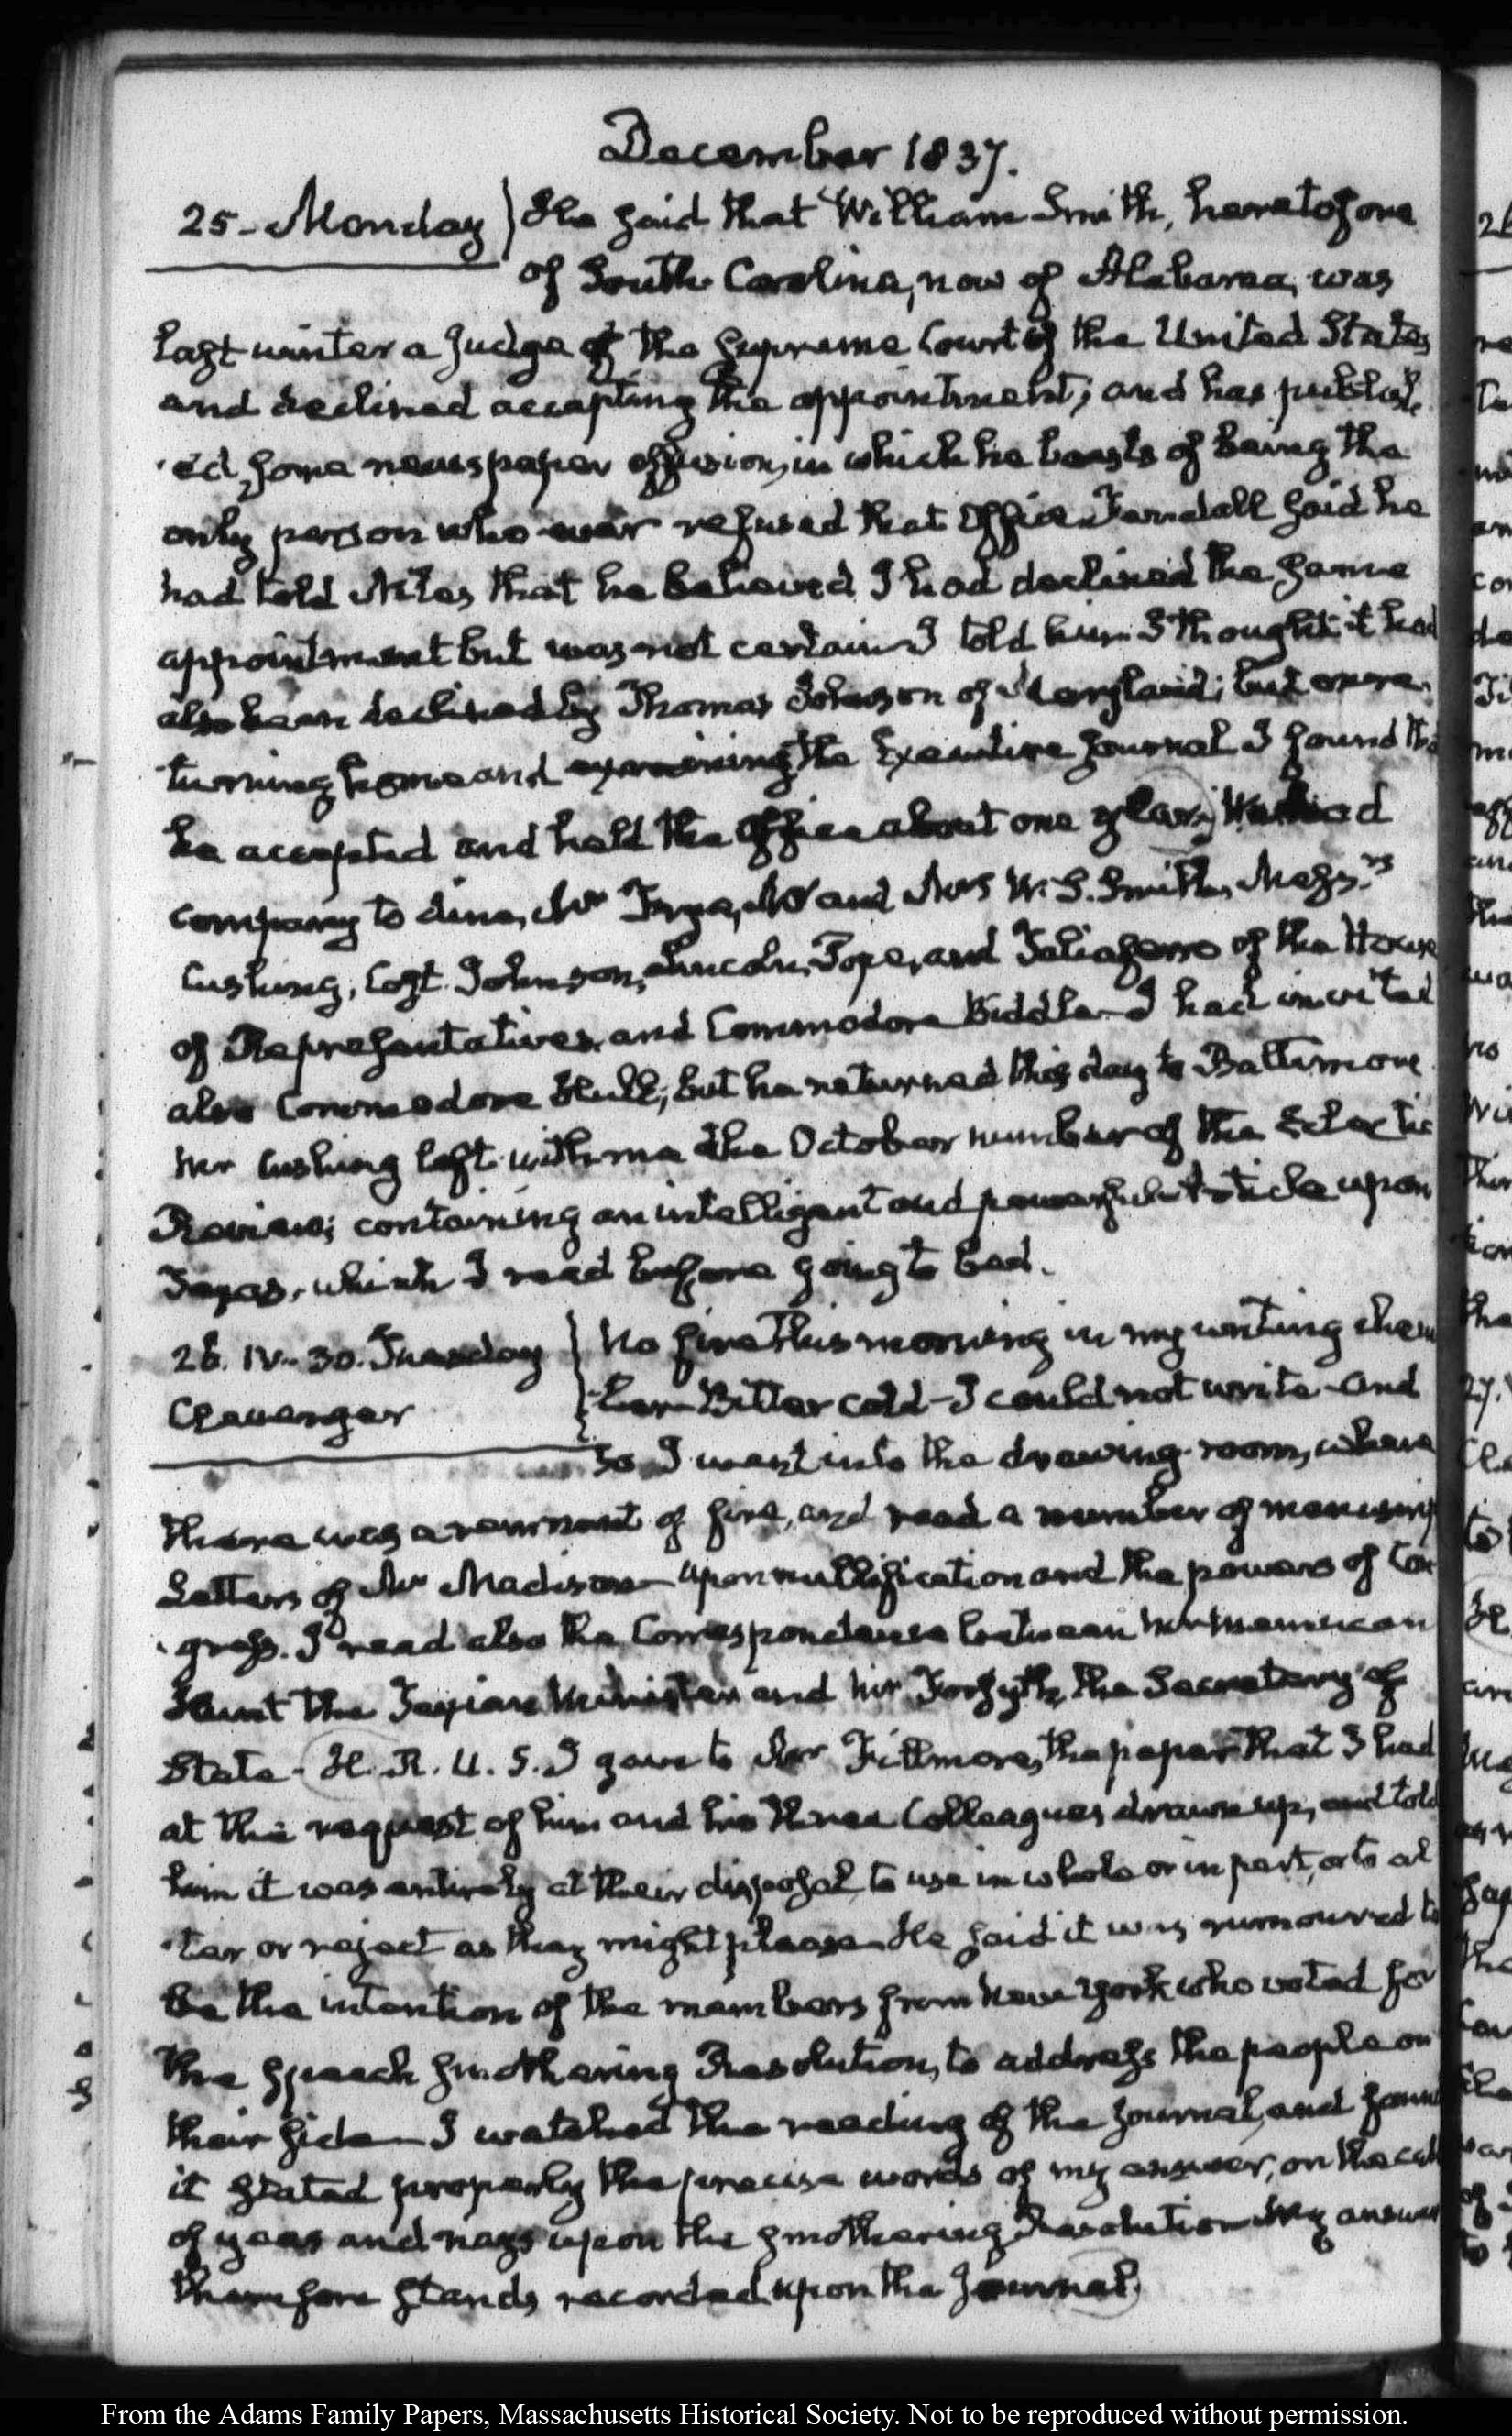 December 1837.
25 - Monday } He said that William Smith, heretofore
of South Carolina, now of Alabama, was
last winter a Judge of the Supreme Court of the United States
and declined accepting the appointment; and has publish
ed some newspaper effusion, in which he boasts of being the
only person who ever refused that Office. Tarndall said he
had told Niles that he believed I had declined the same
appointment but was not certain. I told him I thought it had
also been declined by Thomas Johnson of Maryland; but on re
turning home and examining the Executive Journal I found that
he accepted and held the Office about one year. We had
company to dine, Mr Frye, Mr and Mrs W. S. Smith, Messrs
Cushing, Cost Johnson, Lincoln, Pope, and Taliaferro of the House
of Representatives, and Commodore Biddle - I had invited
also Commodore Hull; but he returned this day to Baltimore
Mr Cushing left with me the October number of the Eclectic
Review; containing an intelligent and powerful article upon
Texas, which I read before going to bed.
26. IV-30. Tuesday } No fire this morning in my writing cham
Clavenger } ber - Bitter cold - I could not write - and
so I went into the drawing-room, where
there was a remnant of fire, and read a number of manuscript
Letters of Mr Madison - upon nullification and the powers of Con
gress. I read also the Correspondence between Mr Memucan
Hunt the Texian Minister and Mr Forsyth, the Secretary of
State - H. R. U. S. I gave to Mr Fillmore, the paper that I had
at the request of him and his three Colleagues drawn up, and told
him it was entirely at their disposal, to use in whole or in part, or to al
ter or reject as they might please - He said it was rumoured to
be the intention of the members from New York who voted for
the speech smothering Resolution, to address the people on
their side - I watched the reading of the Journal, and found
it stated properly the precise words of my answer, on the call
of yeas and nays upon the smothering Resolution - My answer
therefore stands recorded upon the Journal.
From the Adams Family Papers, Massachusetts Historical Society. Not to be reproduced without permission.